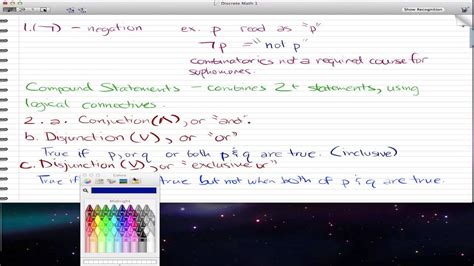 Discrete Math 1
Show Recognition
1. (¬) - negation ex. p read as "p"
¬p = "not p"
combinatorics not a required course for
sophomores.
Compound Statements - combines 2+ statements, using
logical connectives.
2. a. Conjuction (Λ), or "and".
b. Disjunction (V), or "or"
True if p, or q or both p & q are true. (inclusive)
c. Disjunction (V), or "exclusive or"
True if true but not when both of p & q are true.
Colors
Midnight